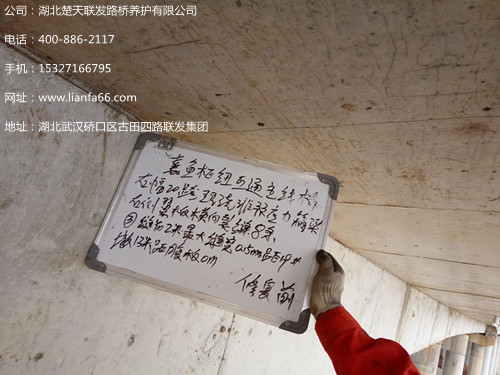 公司：湖北楚天联发路桥养护有限公司
电话：400-886-2117
手机：15327166795
网址：www.lianfa66.com
地址：湖北武汉硚口区古田四路联发集团
嘉鱼枢纽互通主线桥
右幅20跨现浇预应力箱梁
右侧翼板横向裂缝8条
缝长2米最大缝宽0.15mm
距腹板0m
修复前